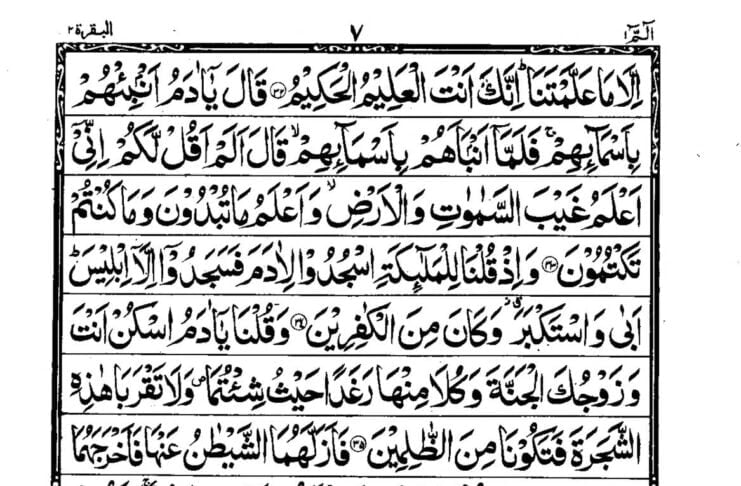 الٓمّٓ ١ ٧ البقرة ٢
اِلَّا مَا عَلَّمْتَنَا ؕ اِنَّكَ اَنْتَ الْعَلِیْمُ الْحَكِیْمُ ﴿۳۲﴾ قَالَ یٰۤاٰدَمُ اَنْۢبِئْهُمْ
بِاَسْمَآىِٕهِمْ ۚ فَلَمَّاۤ اَنْۢبَاَهُمْ بِاَسْمَآىِٕهِمْ ۙ قَالَ اَلَمْ اَقُلْ لَّكُمْ اِنِّیْۤ
اَعْلَمُ غَیْبَ السَّمٰوٰتِ وَالْاَرْضِ ۙ وَاَعْلَمُ مَا تُبْدُوْنَ وَمَا كُنْتُمْ
تَكْتُمُوْنَ ﴿۳۳﴾ وَاِذْ قُلْنَا لِلْمَلٰٓىِٕكَةِ اسْجُدُوْا لِاٰدَمَ فَسَجَدُوْۤا اِلَّاۤ اِبْلِیْسَ ؕ
اَبٰی وَاسْتَكْبَرَ ؗۗ وَكَانَ مِنَ الْكٰفِرِیْنَ ﴿۳۴﴾ وَقُلْنَا یٰۤاٰدَمُ اسْكُنْ اَنْتَ
وَزَوْجُكَ الْجَنَّةَ وَكُلَا مِنْهَا رَغَدًا حَیْثُ شِئْتُمَا ۪ وَلَا تَقْرَبَا هٰذِهِ
الشَّجَرَةَ فَتَكُوْنَا مِنَ الظّٰلِمِیْنَ ﴿۳۵﴾ فَاَزَلَّهُمَا الشَّیْطٰنُ عَنْهَا فَاَخْرَجَهُمَا